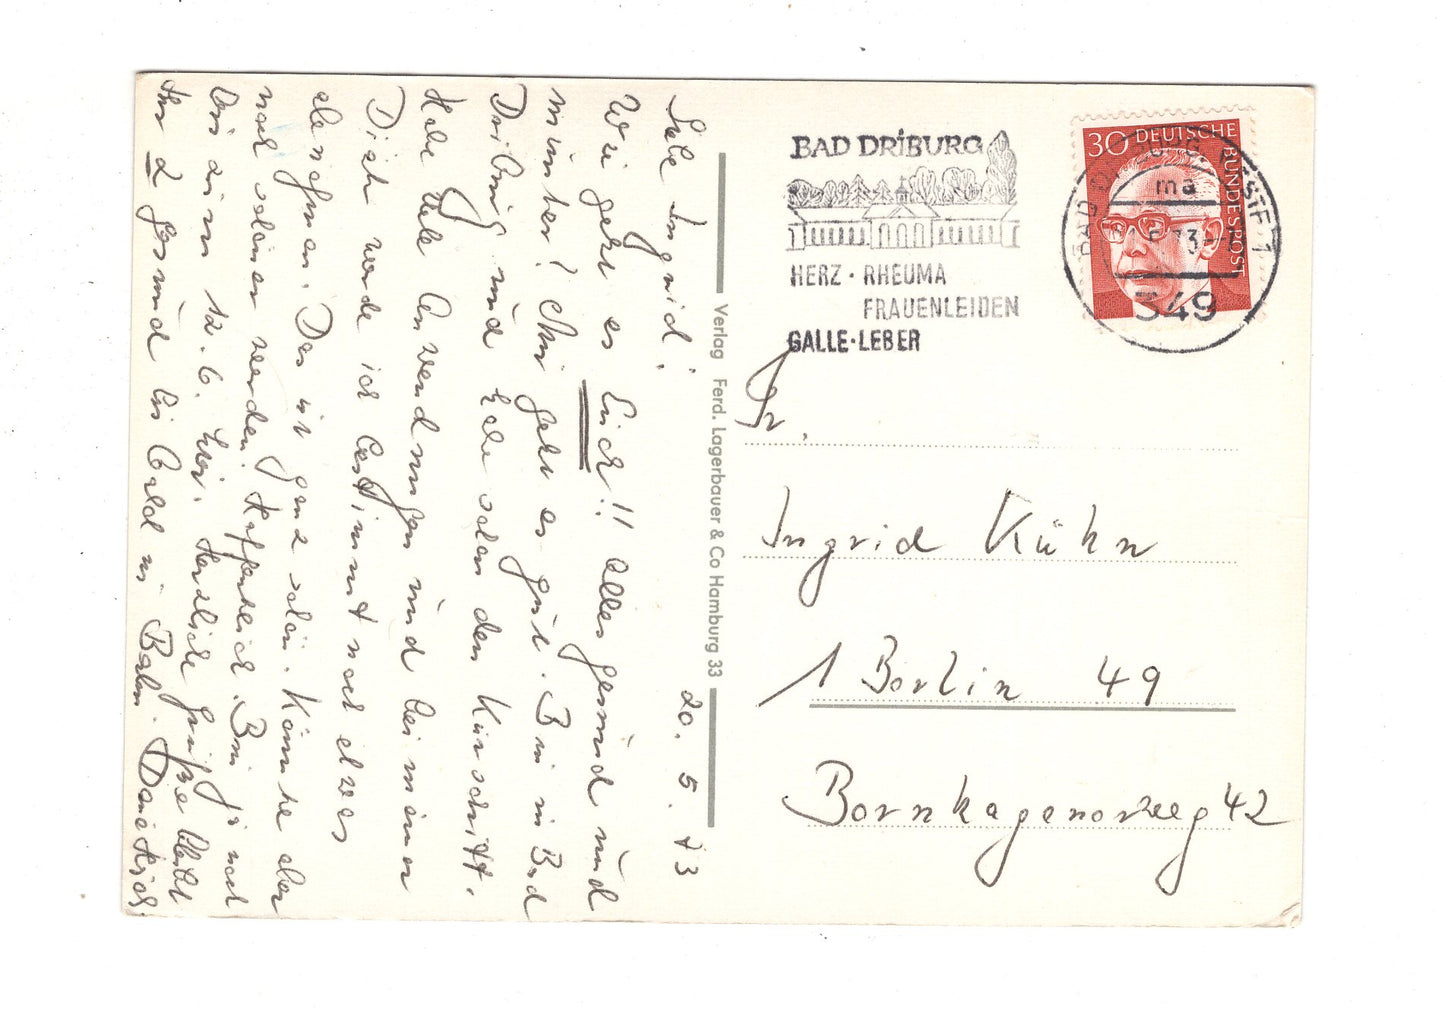 20. 5. 73
Liebe Ingrid!
Wie geht es Euch!! Alles gesund und
munter? Mir geht es gut. Bin in Bad
Driburg und habe schon den Kurschritt.
Habe viele Anwendungen und bei meiner
Diät werde ich bestimmt noch etwas
abnehmen. Das ist ganz schön. Könnte aber
noch schöner werden. Hoffentlich. Bin ja noch
bis zum 12. 6. hier. Herzliche Grüße bleibt
Ihr 2 gesund bis bald in Berlin.
Verlag Ferd. Lagerbauer & Co Hamburg 33
BAD DRIBURG
HERZ · RHEUMA
FRAUENLEIDEN
GALLE · LEBER
30 DEUTSCHE
BUNDESPOST
ma
349
Fr.
Ingrid Kühn
1 Berlin 49
Bornhagenerweg 42